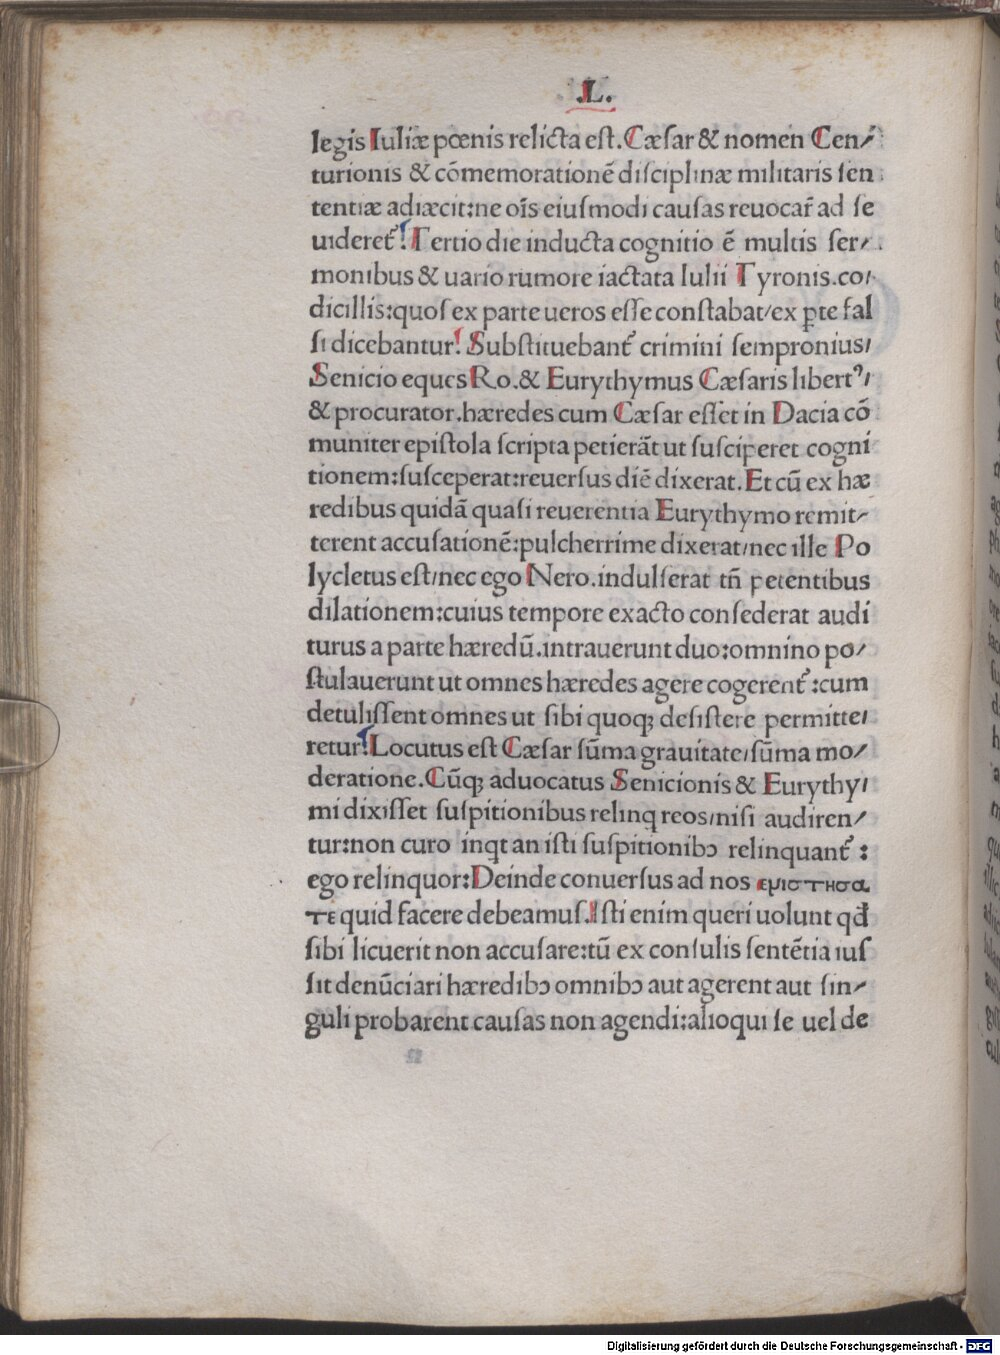 .L.
legis Iuliæ pœnis relicta est. Cæsar & nomen Cen/
turionis & cōmemorationē disciplinæ militaris sen
tentiæ adiæcit:ne oīs eiusmodi causas reuocar̃ ad se
uideret̃. Tertio die inducta cognitio ē multis ser/
monibus & uario rumore iactata Iulii Tyronis.co/
dicillis:quos ex parte ueros esse constabat/ex ꝑte fal
si dicebantur. Substituebant̃ crimini sempronius/
Senicio eques Ro.& Eurythymus Cæsaris libertꝰ/
& procurator.hæredes cum Cæsar esset in Dacia cō
muniter epistola scripta petierāt ut susciperet cogni
tionem:susceperat:reuersus diē dixerat. Et cū ex hæ
redibus quidā quasi reuerentia Eurythymo remit/
terent accusationē:pulcherrime dixerat/nec ille Po
lycletus est/nec ego Nero.indulserat tñ petentibus
dilationem:cuius tempore exacto consederat audi
turus a parte hæredū.intrauerunt duo:omnino po/
stulauerunt ut omnes hæredes agere cogerent̃:cum
detulissent omnes ut sibi quoqꝫ desistere permitte/
retur. Locutus est Cæsar sūma grauitate/sūma mo/
deratione. Cūqꝫ aduocatus Senicionis & Eurythy/
mi dixisset suspitionibus relinq reos/nisi audiren/
tur:non curo inqt an isti suspitionibꝯ relinquant̃:
ego relinquor: Deinde conuersus ad nos επιστησα
τε quid facere debeamus. Isti enim queri uolunt qđ
sibi licuerit non accusare:tū ex consulis sentētia ius
sit denūciari hæredibꝯ omnibꝯ aut agerent aut sin/
guli probarent causas non agendi:alioqui se uel de
Digitalisierung gefördert durch die Deutsche Forschungsgemeinschaft - DFG